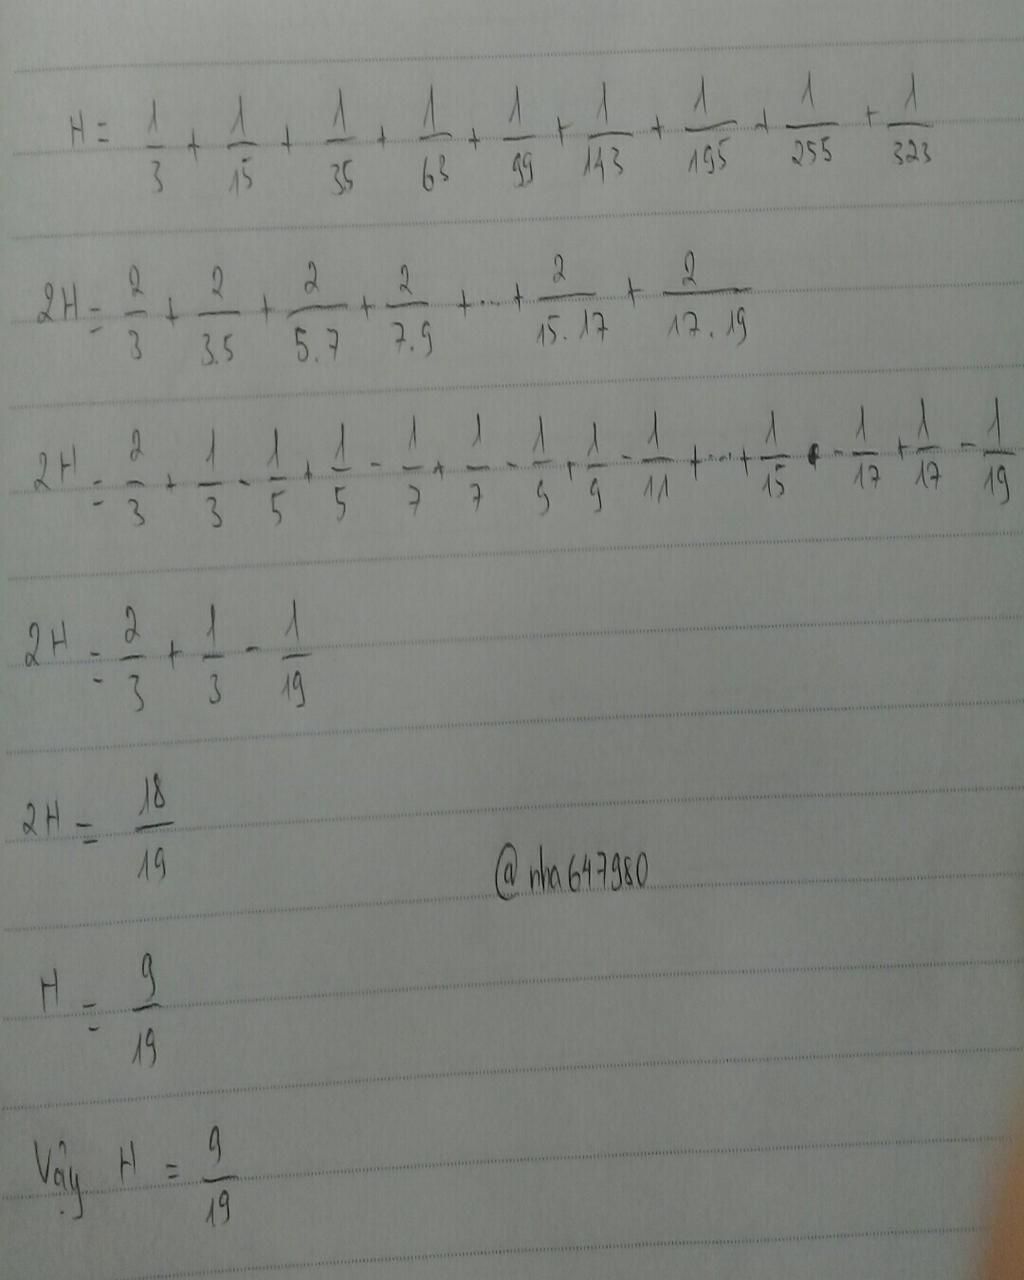 H = 1/3 + 1/15 + 1/35 + 1/63 + 1/99 + 1/143 + 1/195 + 1/255 + 1/323
2H = 2/3 + 2/3.5 + 2/5.7 + 2/7.9 + ... + 2/15.17 + 2/17.19
2H = 2/3 + 1/3 - 1/5 + 1/5 - 1/7 + 1/7 - 1/9 + 1/9 - 1/11 + ... + 1/15 - 1/17 + 1/17 - 1/19
2H = 2/3 + 1/3 - 1/19
2H = 18/19
@nha647980
H = 9/19
Vậy H = 9/19